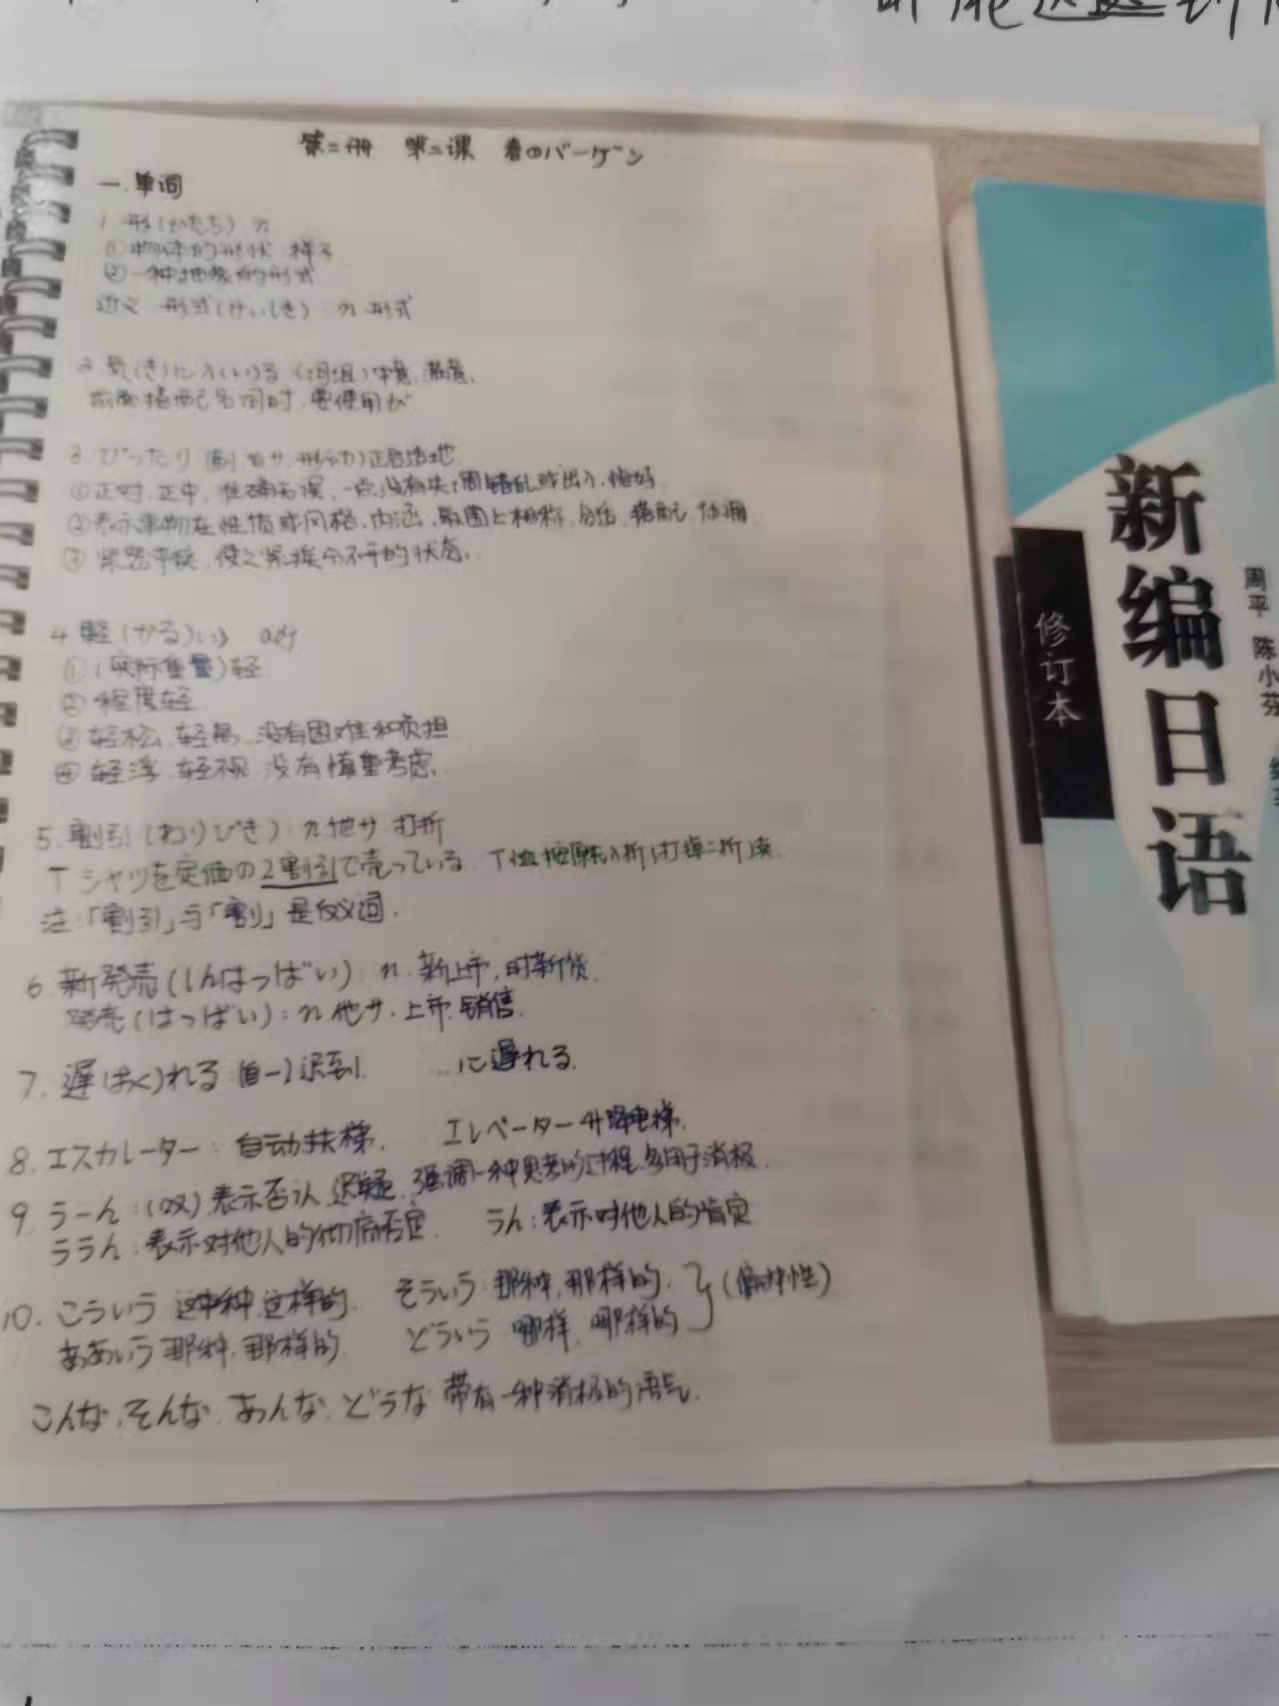 第二册 第二课 春のバーゲン
一.单词
1 形(かたち) n
①物体的形状 样子
②一种抽象的形式
近义 形式(けいしき) n 形式
2 気(き)に入(い)る (词组)中意,满意.
前面搭配名词时,要使用が
3 ぴったり (副 自サ.形动)正合适地
①正对,正中,准确无误,一点没有失调错乱或出入,恰好
②表示事物在性质或风格,内涵,氛围上相称,合适,搭配,协调
③紧密平铺,使之紧挨分不开的状态.
4 軽(かる)い adj
①(实际重量)轻
②程度轻
③轻松,轻易,没有困难和负担
④轻浮,轻视,没有慎重考虑.
5.割引(わりびき) n他サ 打折
Tシャツを定価の2割引で売っている T恤按原价八折(打掉二折)卖.
注:「割引」与「割」是反义词.
6 新発売(しんはっばい): n. 新上市,时新货.
発売(はっばい): n 他サ. 上市.销售.
7. 遅(おく)れる:自一)迟到. …に遅れる.
8. エスカレーター: 自动扶梯. エレベーター 升降电梯.
9. うーん:(叹)表示否认,迟疑,强调一种思考的过程.多用于消极
ううん:表示对他人的彻底否定. うん:表示对他人的肯定
10. こういう 这种,这样的. そういう:那种,那样的.
ああいう 那种,那样的 どういう 哪样,哪样的
こんな,そんな,あんな,どうな 带有一种消极的语气.
新编日语
修订本
周平 陈小芬